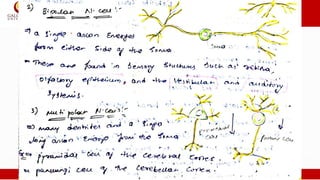 2) Bipolar N. cell :-
→ a single axon Emerges
from either side of the Soma
Soma
→ These are found in Sensory Structures such as retina,
olfactory epithelium, and the vestibular and auditory
Systems.
3) Multipolar N. cell :-
→ many dentrites and a single
long axon Emerge from the Soma
Pyramidal cell
Eg → pyramidal cell of the cerebral cortex.
cell of the cerebellar cortex.